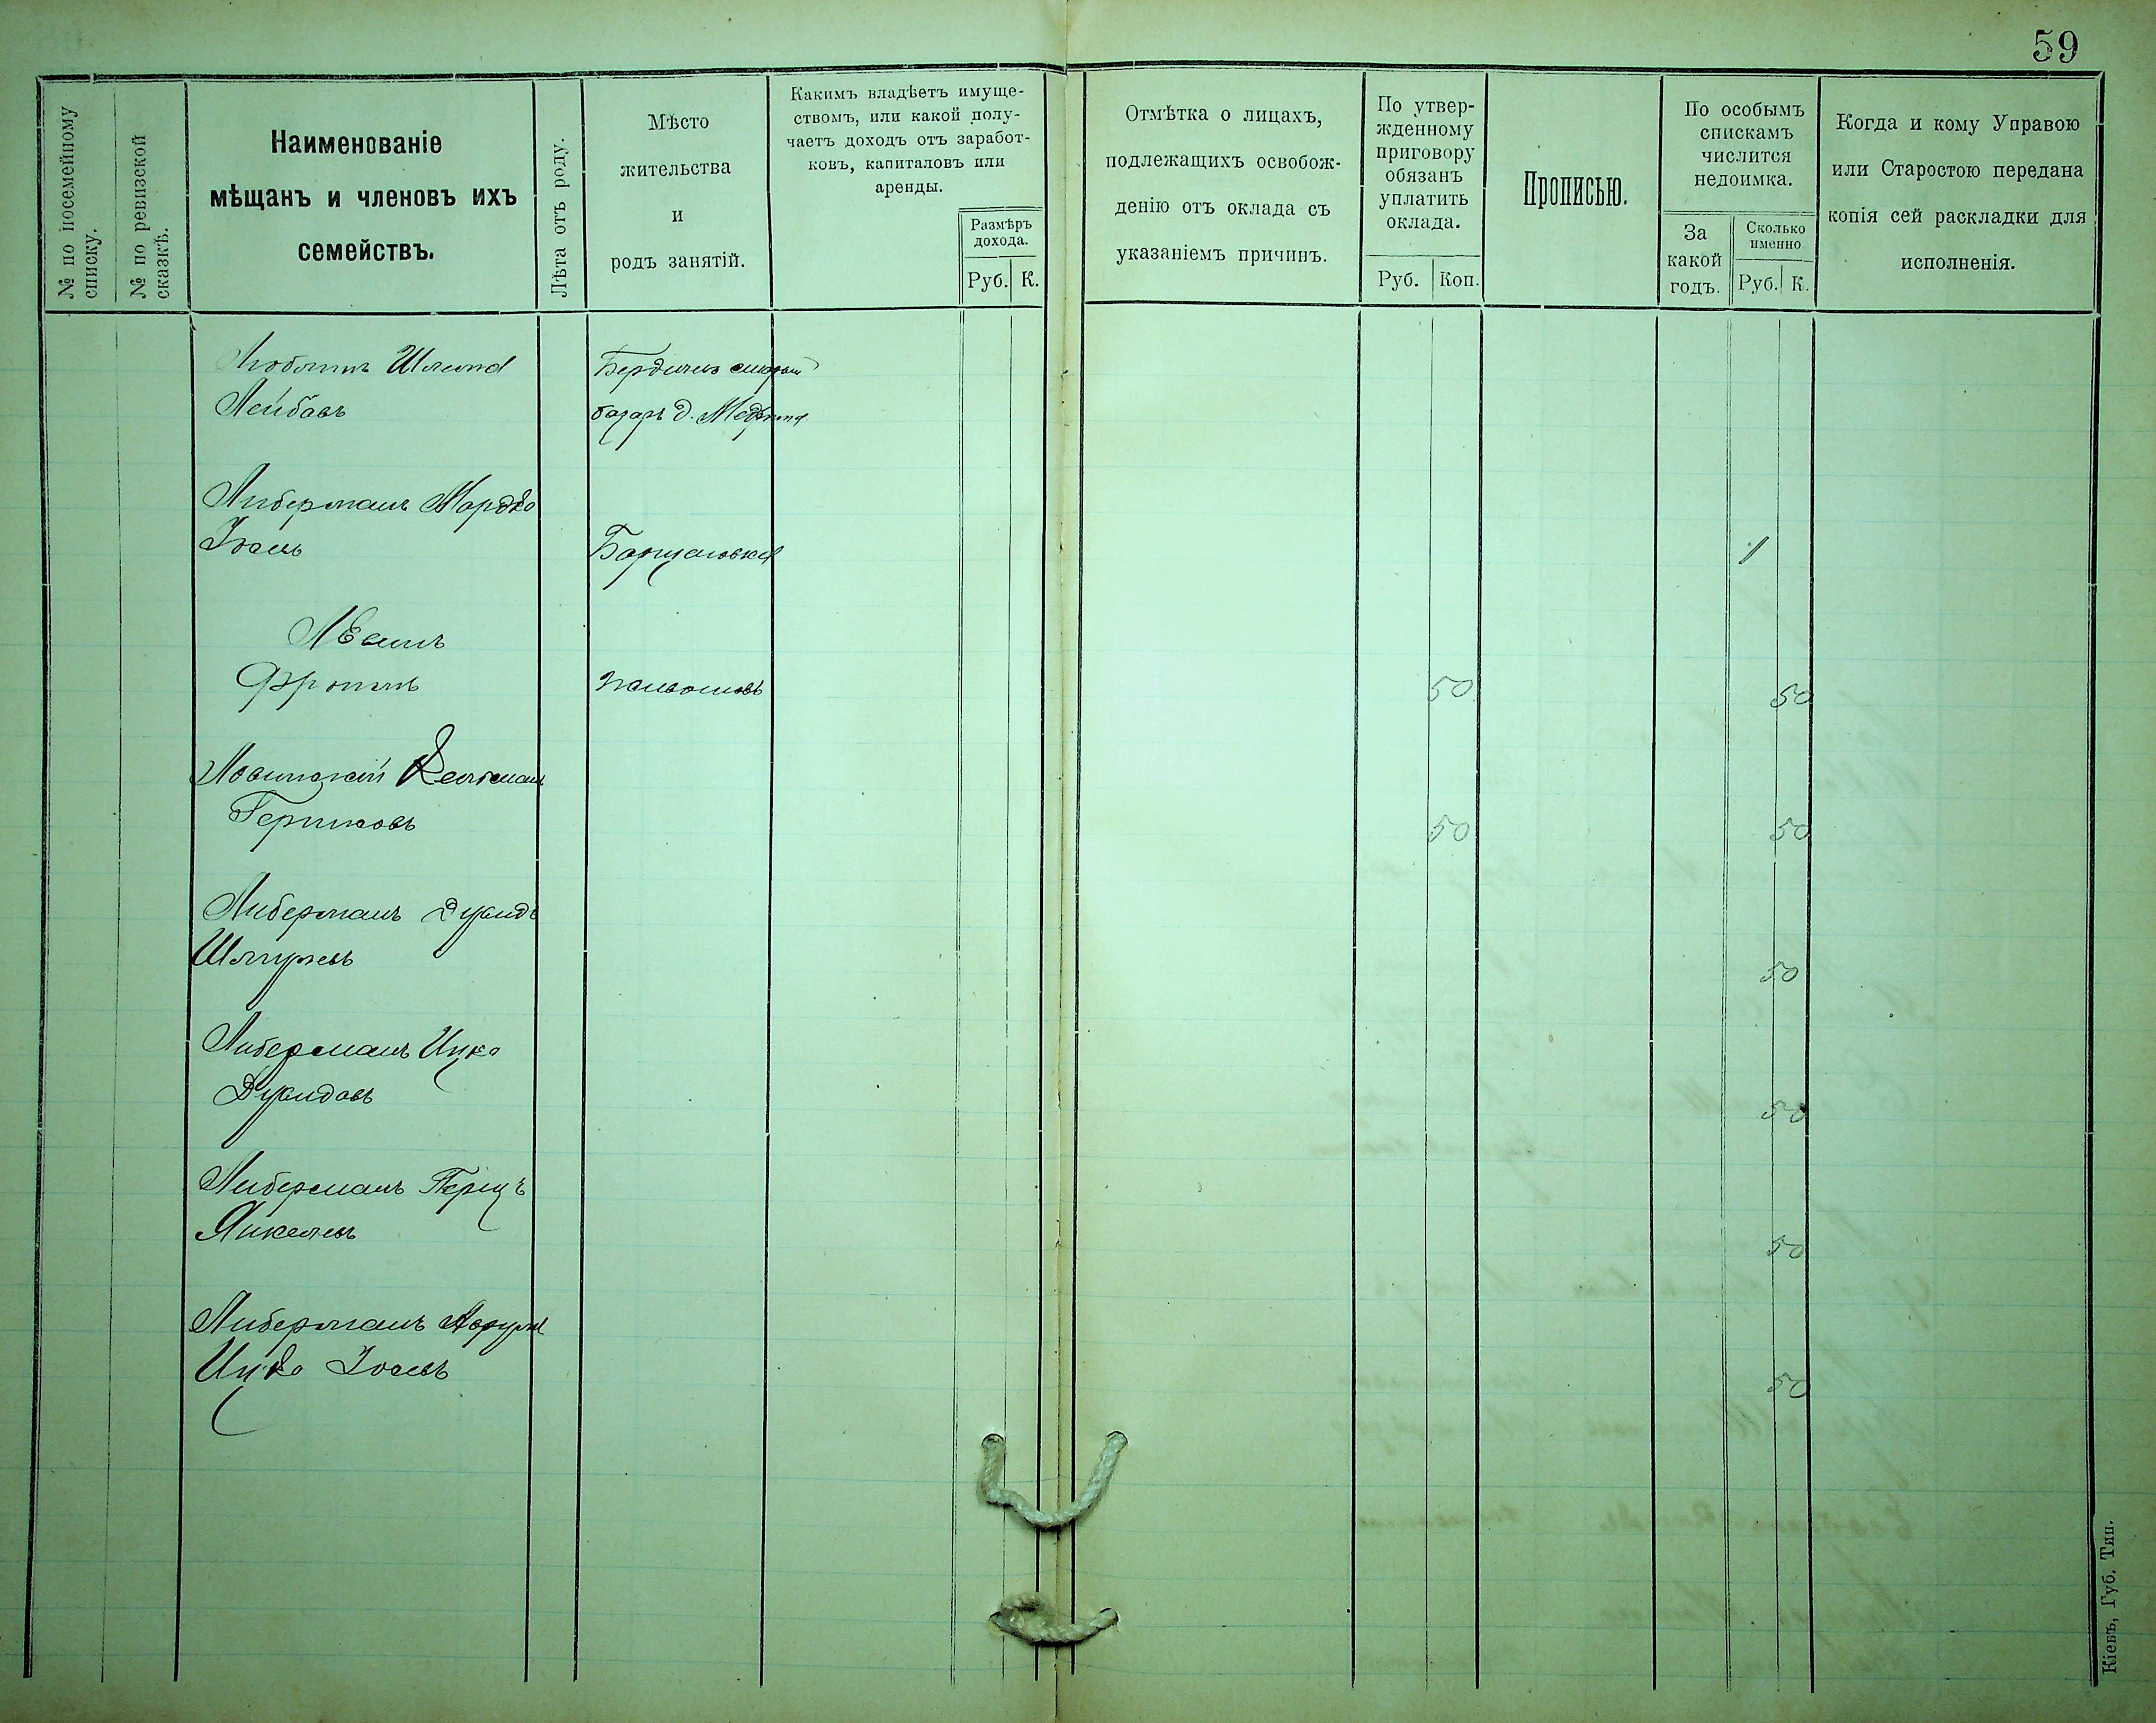 59
№ по посемейному
списку.
№ по ревизской
сказкѣ.
Наименованіе
мѣщанъ и членовъ ихъ
семействъ.
Лѣта отъ роду.
Мѣсто
жительства
и
родъ занятій.
Какимъ владѣетъ имуще-
ствомъ, или какой полу-
чаетъ доходъ отъ заработ-
ковъ, капиталовъ или
аренды.
Размѣръ
дохода.
Руб. К.
Отмѣтка о лицахъ,
подлежащихъ освобож-
денію отъ оклада съ
указаніемъ причинъ.
По утвер-
жденному
приговору
обязанъ
уплатить
оклада.
Руб. Коп.
Прописью.
По особымъ
спискамъ
числится
недоимка.
За
какой
годъ.
Сколько
именно
Руб. К.
Когда и кому Управою
или Старостою передана
копія сей раскладки для
исполненія.
Бердичев
Лейбовъ базаръ д.
Либерманъ Мордко
1
Левинъ
50 50
Гершковъ 50 50
Либерманъ Дувидъ
50
Либерманъ Ицко
Дувидовъ 50
Либерманъ Перецъ
Янкелевъ 50
Либерманъ
Ицко 50
Кіевъ, Губ. Тип.